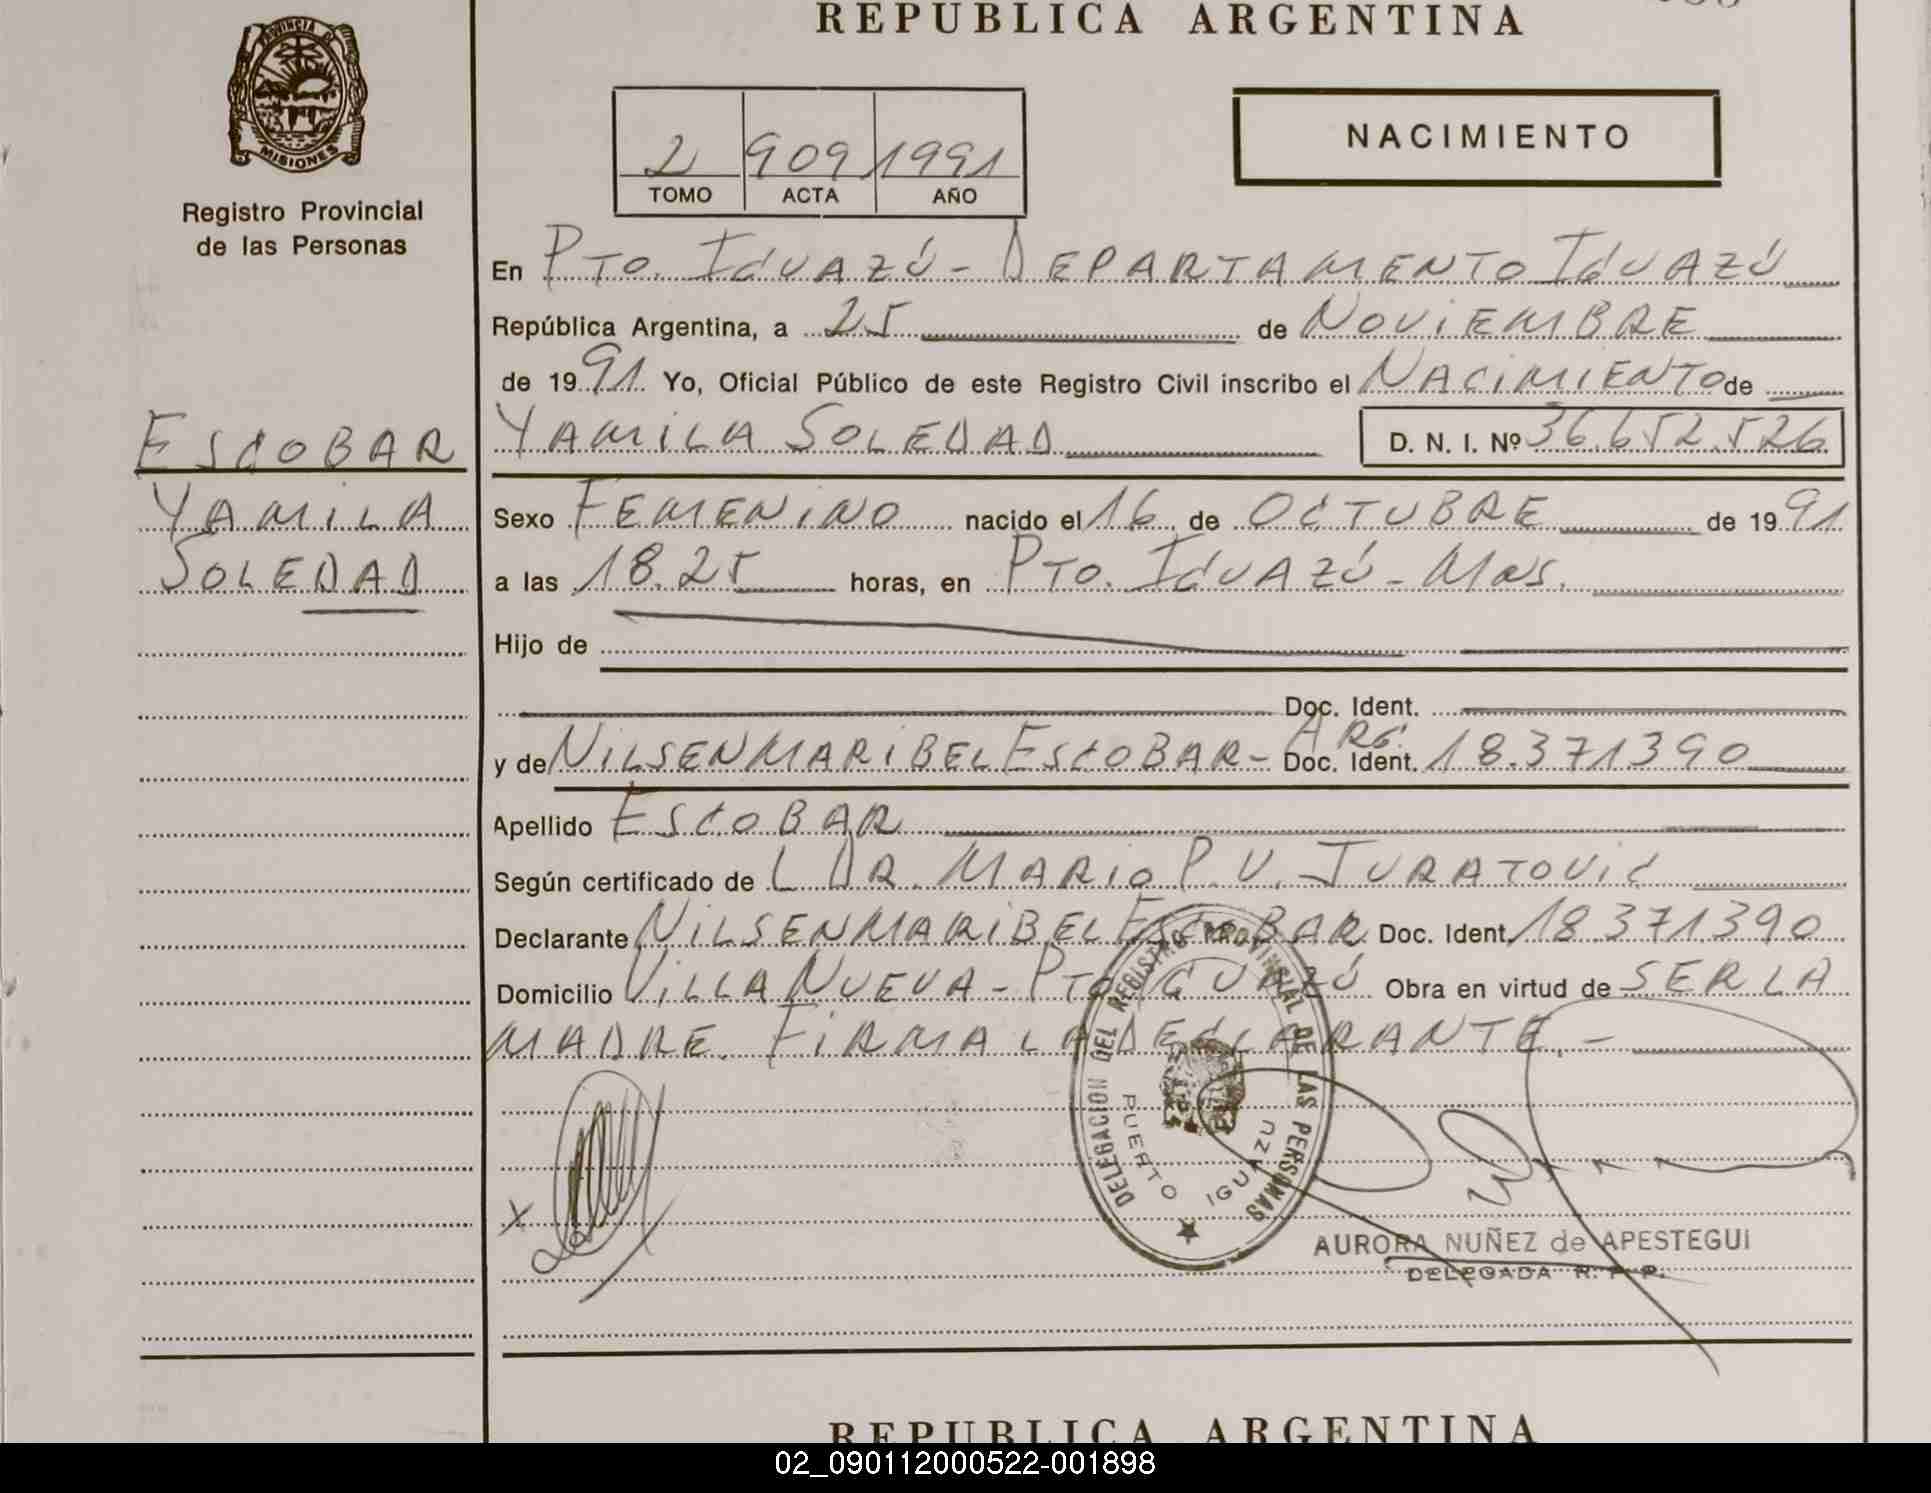 REPUBLICA ARGENTINA
PROVINCIA DE
MISIONES
Registro Provincial
de las Personas
2 909 1991
TOMO ACTA AÑO
NACIMIENTO
En PTO. IGUAZÚ - DEPARTAMENTO IGUAZÚ
República Argentina, a 25 de NOVIEMBRE
de 1991 Yo, Oficial Público de este Registro Civil inscribo el NACIMIENTO de
ESCOBAR
YAMILA SOLEDAD D. N. I. Nº 36.652.526
YAMILA
SOLEDAD
Sexo FEMENINO nacido el 16 de OCTUBRE de 1991
a las 18.25 horas, en PTO. IGUAZÚ - Mnes.
Hijo de
Doc. Ident.
y de NILSEN MARIBEL ESCOBAR - ARG. Doc. Ident. 18.371390
Apellido ESCOBAR
Según certificado de L DR. MARIO P. V. JURATOVIC
Declarante NILSEN MARIBEL ESCOBAR Doc. Ident. 18.371.390
Domicilio VILLA NUEVA - PTO IGUAZÚ Obra en virtud de SER LA
MADRE. FIRMA LA DECLARANTE. -
DELEGACION DEL REGISTRO PROVINCIAL DE LAS PERSONAS
PUERTO IGUAZU
X
AURORA NUÑEZ de APESTEGUI
DELEGADA R. P. P.
REPUBLICA ARGENTINA
02_090112000522-001898